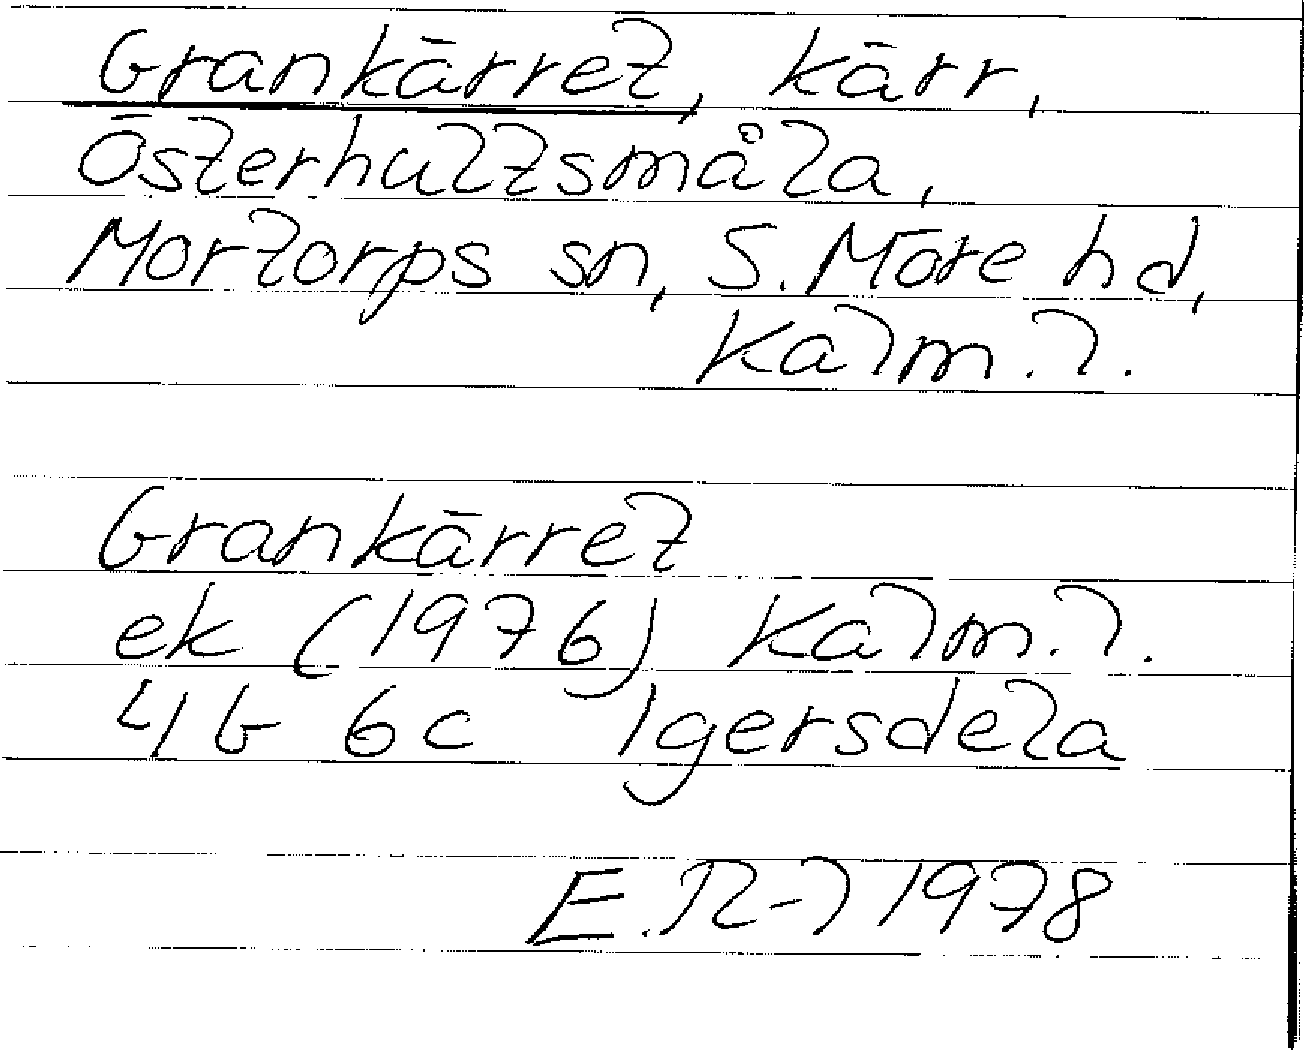 Grankärret, kärr,
Österhultsmåla,
Mortorps sn, S. Möre hd,
Kalm. l.
Grankärret
ek (1976) Kalm. l.
4G 6c Igersdela
1978